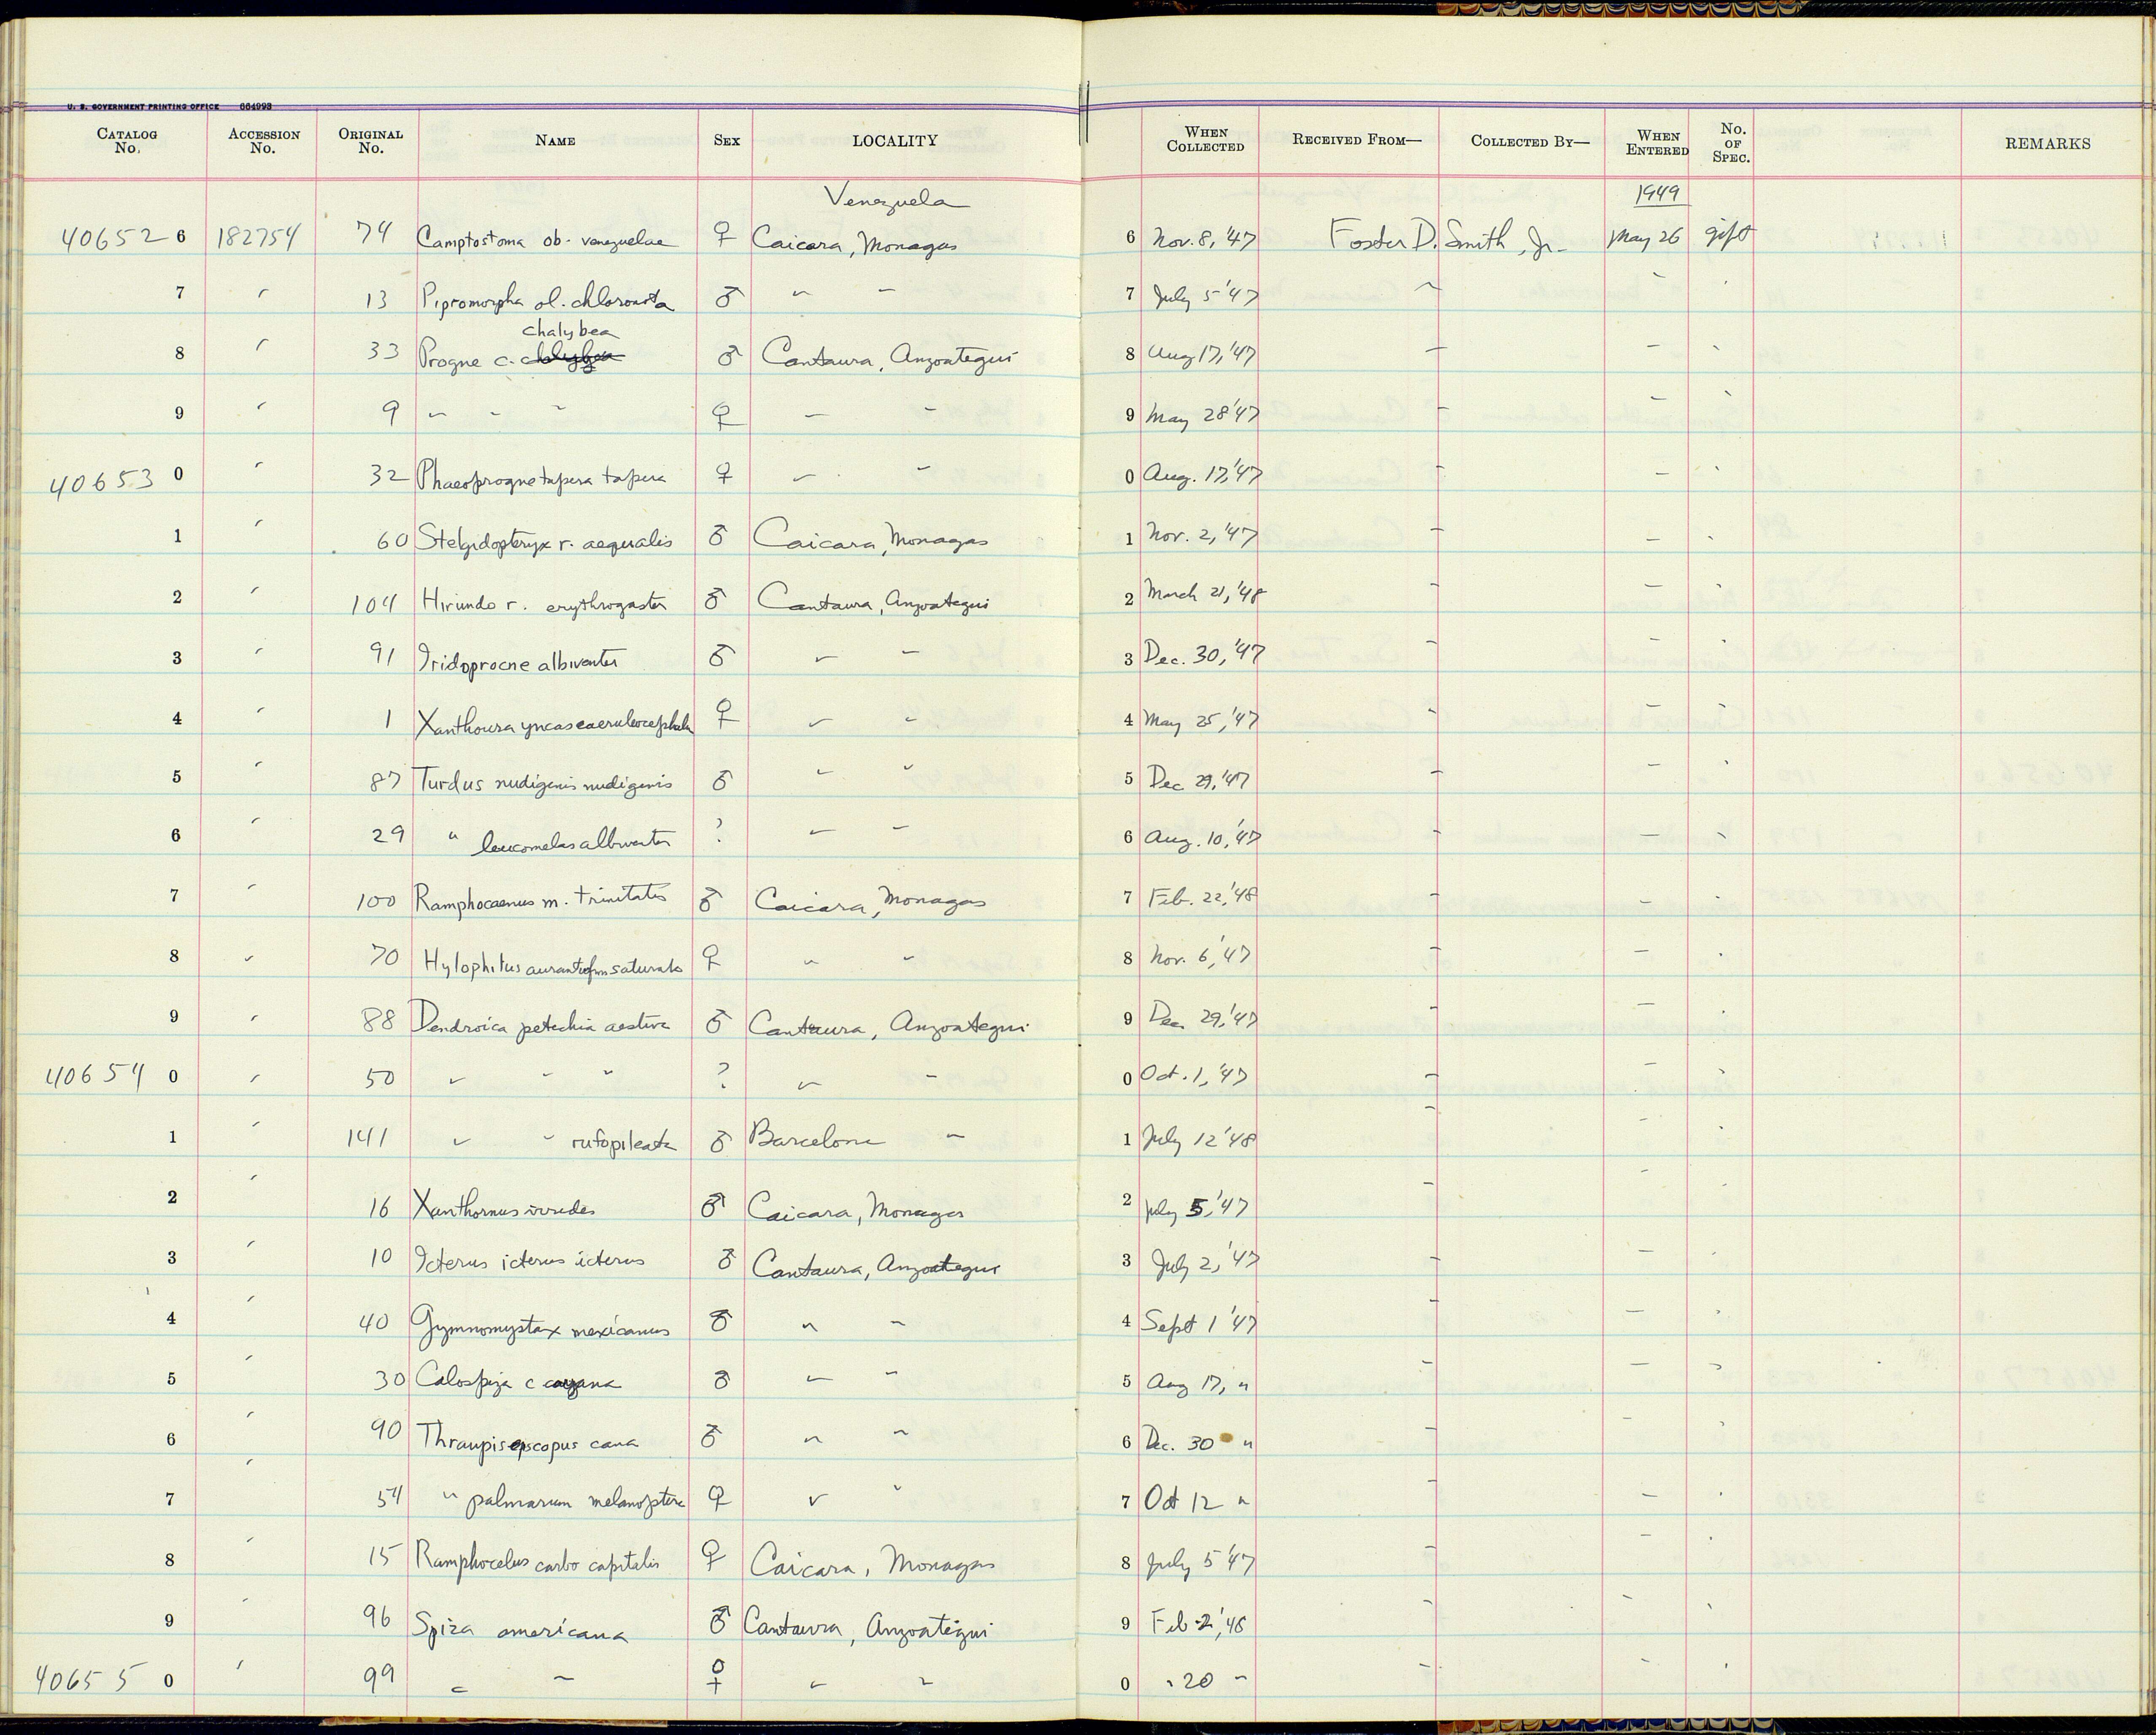 U. S. GOVERNMENT PRINTING OFFICE 664993
CATALOG No. ACCESSION No. ORIGINAL No. NAME SEX LOCALITY WHEN COLLECTED RECEIVED FROM— COLLECTED BY— WHEN ENTERED No. OF SPEC. REMARKS
Venezuela 1949
406526 182754 74 Camptostoma ob. venezuelae ♀ Caicara, Monagas 6 Nov. 8, '47 Foster D. Smith, Jr. May 26 gift
7 " 13 Pipromorpha ol. chloronota ♂ " " 7 July 5 '47 " " "
chalybea
8 " 33 Progne c. ♂ Cantaura, Anzoategui 8 Aug 17, '47 " " "
9 " 9 " " " ♀ " " 9 May 28 '47 " " "
406530 " 32 Phaeoprogne tapera tapera ♀ " " 0 Aug. 17, '47 " " "
1 " 60 Stelgidopteryx r. aequalis ♂ Caicara, Monagas 1 Nov. 2, '47 " " "
2 " 104 Hirundo r. erythrogaster ♂ Cantaura, Anzoategui 2 March 21, '48 " " "
3 " 91 Iridoprocne albiventer ♂ " " 3 Dec. 30, '47 " " "
4 " 1 Xanthoura yncas caeruleocephala ♀ " " 4 May 25, '47 " " "
5 " 87 Turdus nudigenis nudigenis ♂ " " 5 Dec 29, '47 " " "
6 " 29 " leucomelas albiventer ? " " 6 Aug. 10, '47 " " "
7 " 100 Ramphocaenus m. trinitatis ♂ Caicara, Monagas 7 Feb. 22, '48 " " "
8 " 70 Hylophilus saturatus ♀ " " 8 Nov. 6, '47 " " "
9 " 88 Dendroica petechia aestiva ♂ Cantaura, Anzoategui 9 Dec. 29, '47 " " "
406540 " 50 " " " ? " " 0 Oct. 1, '47 " " "
1 " 141 " " rufopileata ♂ Barcelona " 1 July 12 '48 " " "
2 " 16 Xanthornus viridis ♂ Caicara, Monagas 2 July 5, '47 " " "
3 " 10 Icterus icterus icterus ♂ Cantaura, Anzoategui 3 July 2, '47 " " "
4 " 40 Gymnomystax mexicanus ♂ " " 4 Sept 1 '47 " " "
5 " 30 Calospiza c cayana ♂ " " 5 Aug 17, " " " "
6 " 90 Thraupis episcopus cana ♂ " " 6 Dec. 30 " " " "
7 " 54 " palmarum melanoptera ♀ " " 7 Oct 12 " " " "
8 " 15 Ramphocelus carbo capitalis ♀ Caicara, Monagas 8 July 5 '47 " " "
9 " 96 Spiza americana ♂ Cantaura, Anzoategui 9 Feb 2, '48 " " "
406550 " 99 " " ♀ " " 0 " 20 " " " "